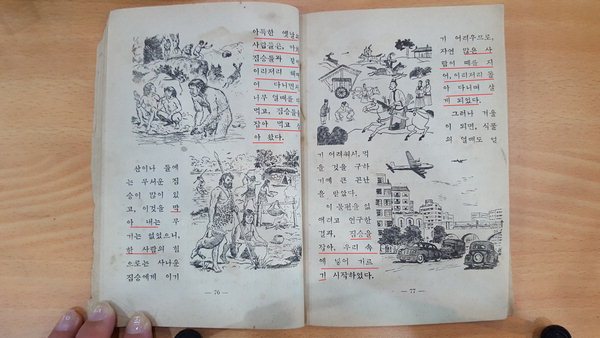 아득한 옛날의
사람들은, 마치
짐승들과 같이
이리저리 헤매
어 다니면서,
나무 열매를 따
먹고, 짐승들을
잡아 먹고 살
아 왔다.
산이나 들에
는 무서운 짐
승이 많이 있
고, 이것을 막
아 내는 무
기는 없었으니,
한 사람의 힘
으로는 사나운
짐승에게 이기
— 76 —
기 어려우므로,
자연 많은 사
람이 떼를 지
어, 이리저리 돌
아 다니며 살
게 되었다.
그러나 겨울
이 되면, 식물
의 열매도 얻
기 어려워서, 먹
을 것을 구하
기에 큰 곤란
을 받았다.
이 불편을 없
애려고 연구한
결과, 짐승을
잡아, 우리 속
에 넣어 기르
기 시작하였다.
— 77 —